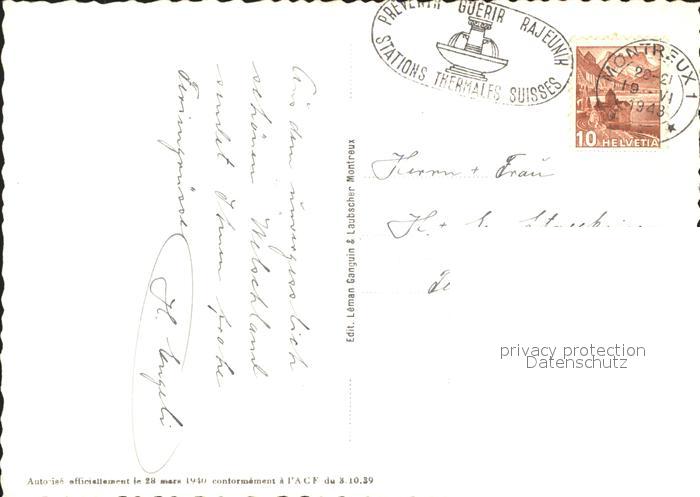 PRÉVENIR GUÉRIR RAJEUNIR
STATIONS THERMALES SUISSES
MONTREUX 1
1948
10 HELVETIA
Aus dem unvergesslich
schönen Welschland
sendet Ihnen frohe
Feriengrüsse
H. Engeli
Edit. Léman Ganguin & Laubscher Montreux
Herrn + Frau
H. +
privacy protection
Datenschutz
Autorisé officiellement le 28 mars 1940 conformément à l'ACF du 3.10.39